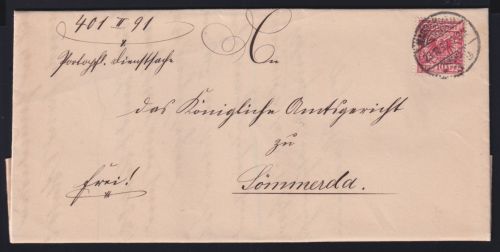 401 II 91
Portopfl. Dienstsache
An
das Königliche Amtsgericht
zu
Sömmerda.
frei!